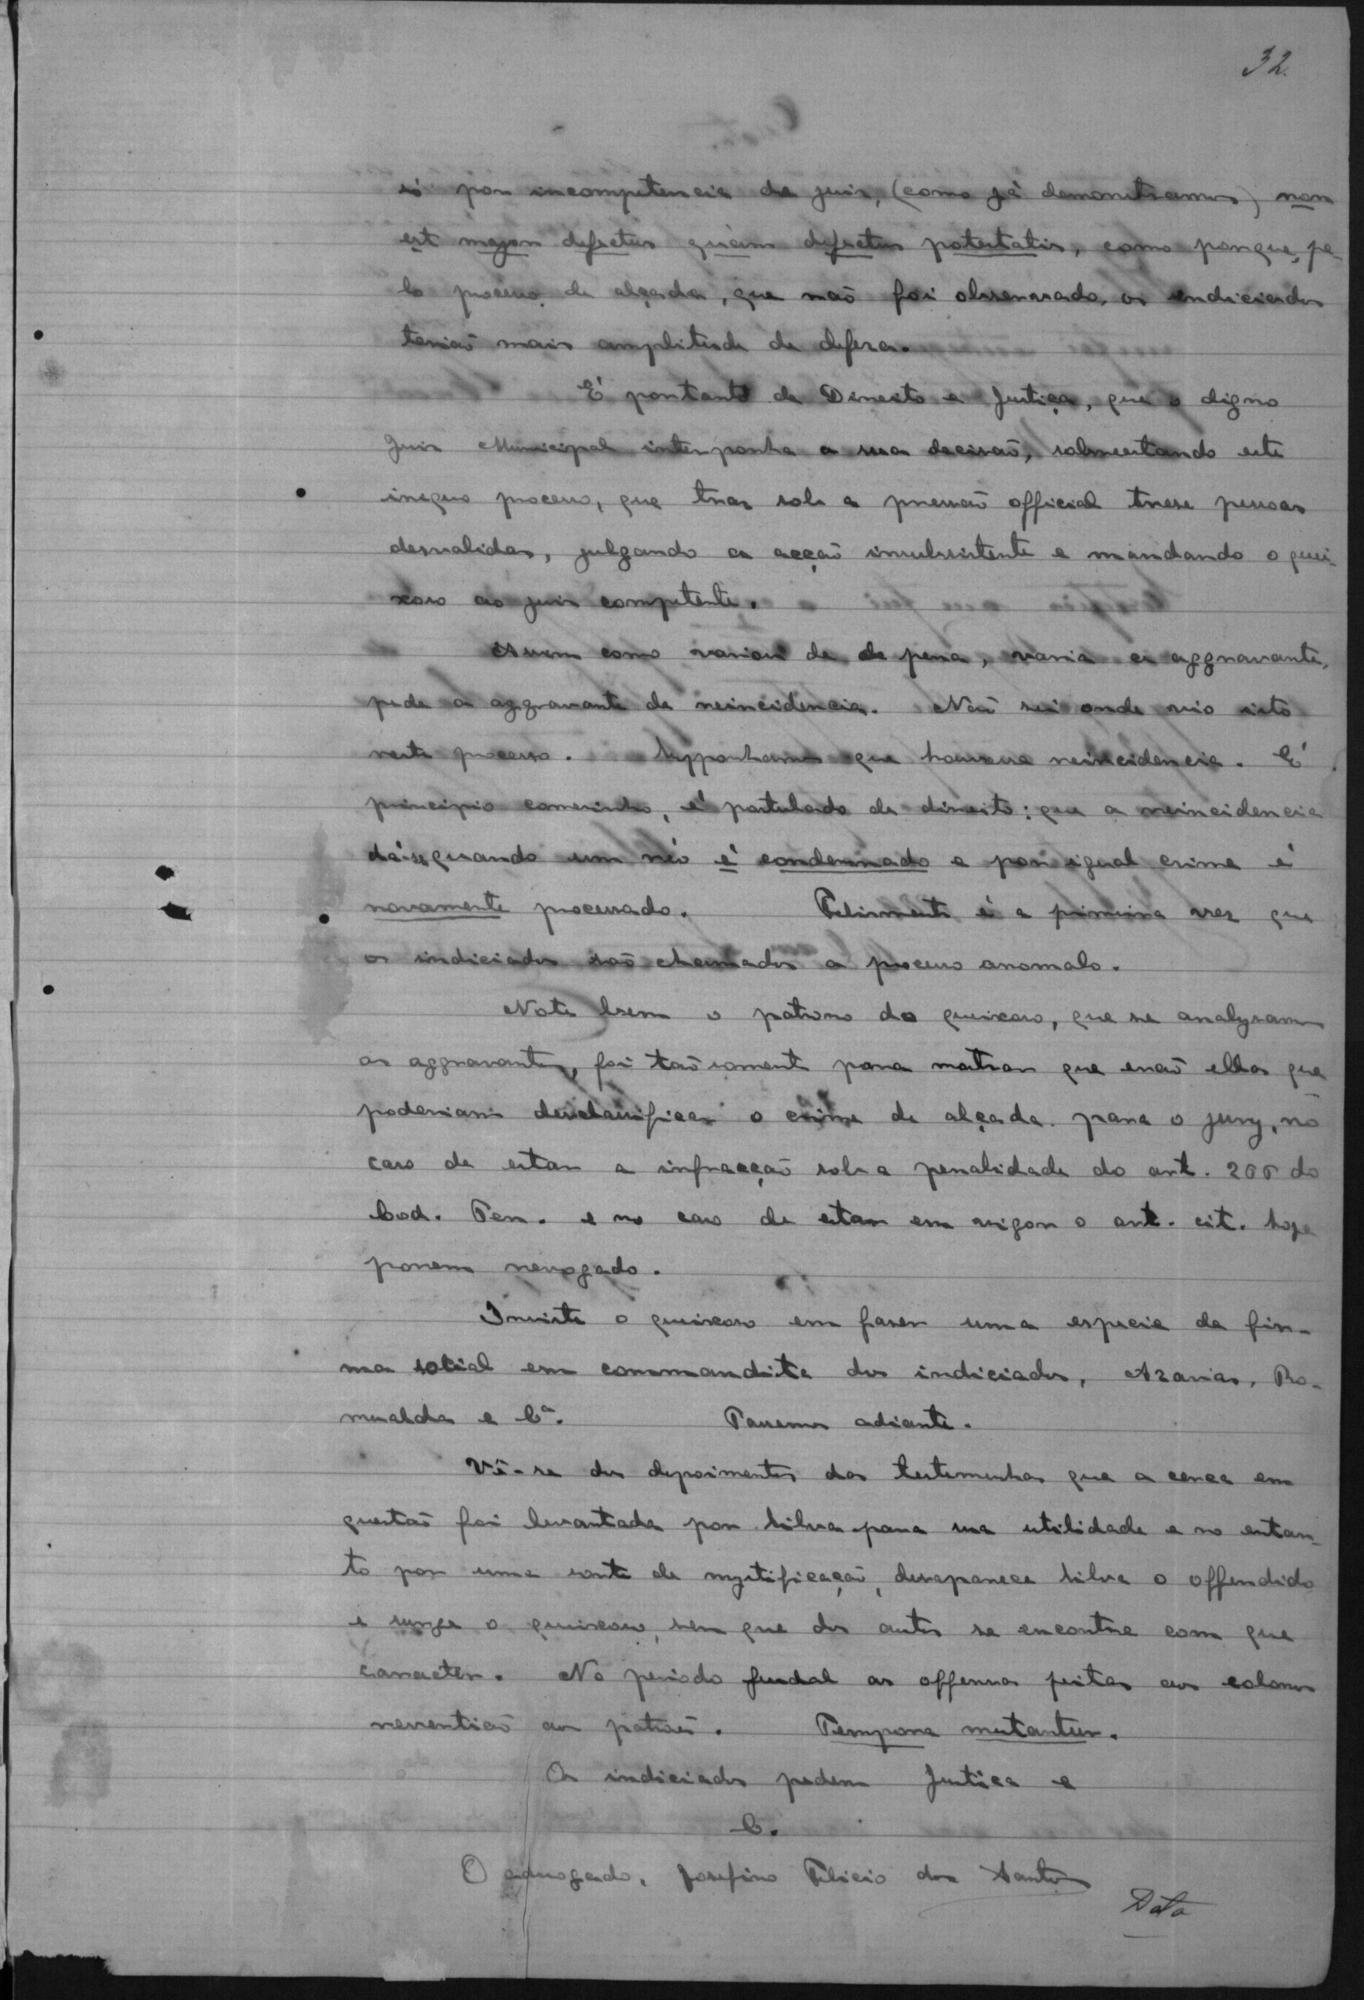 32.
só por incompetencia de juiz, (como já demonstramos) non
est major defectus quàm defectus potestatis, como porque, pe-
lo processo de alçada, que não foi observado, os indiciados
terião mais amplitude de defesa.
É portanto de Direito e Justiça, que o digno
Juiz Municipal interponha a sua decisão, sobrestando este
iniquo processo, que traz sob a pressão official treze pessoas
desvalidas, julgando a acção insubsistente e mandando o quei-
xoso ao juiz competente.
Assim como variou de de pena, varia a aggravante,
pede a aggravante da reincidencia. Não sei onde vio isto
neste processo. Supponhamos que houvesse reincidencia. É
principio comesinho, é postulado de direito: que a reincidencia
dá-se quando um réo é condemnado e por igual crime é
novamente processado. Felizmente é a primeira vez que
os indiciados são chamados a processo anomalo.
Note bem o patrono do queixoso, que se analysamos
as aggravantes, foi tão somente para mostrar que erão ellas que
poderiam desclassificar o crime de alçada para o jury, no
caso de estar a infracção sob a penalidade do art. 266 do
Cod. Pen. e no caso de estar em vigor o art. cit. hoje
porem revogado.
Insiste o queixoso em fazer uma especie de fir-
ma social em commandita dos indiciados, Azarias, Ro-
mualda e Cª. Passemos adiante.
Vê-se dos depoimentos das testemunhas que a cerca em
questão foi levantada por Silva para sua utilidade e no entan-
to por uma sorte de mystificação, desapparece Silva o offendido
e surge o queixoso, sem que dos autos se encontre com que
caracter. No periodo feudal as offensas feitas aos colonos
revertião aos patrões. Tempora mutantur.
Os indiciados pedem Justiça e
C.
O advogado, Josefino Felicio dos Santos
Data